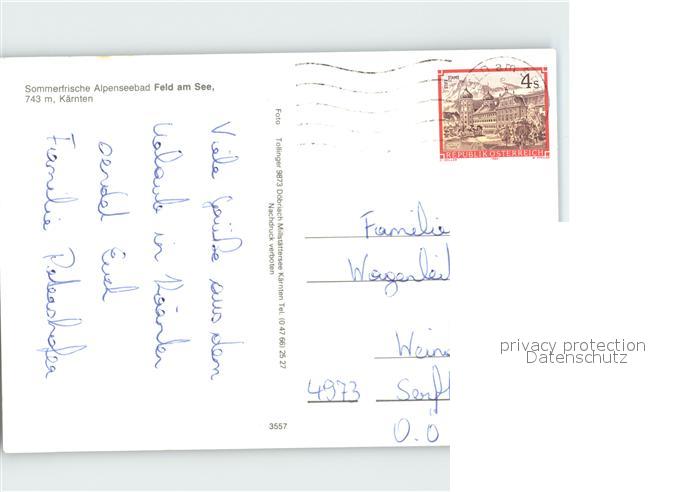 Sommerfrische Alpenseebad Feld am See,
743 m, Kärnten
4 S
REPUBLIK ÖSTERREICH
Foto Tollinger 9873 Döbriach Millstättersee Kärnten Tel. (0 47 66) 25 27
Nachdruck verboten
3557
Viele Grüße aus dem
Urlaub in Kärnten
sendet Euch
Familie
Familie
4973
O.Ö
privacy protection
Datenschutz